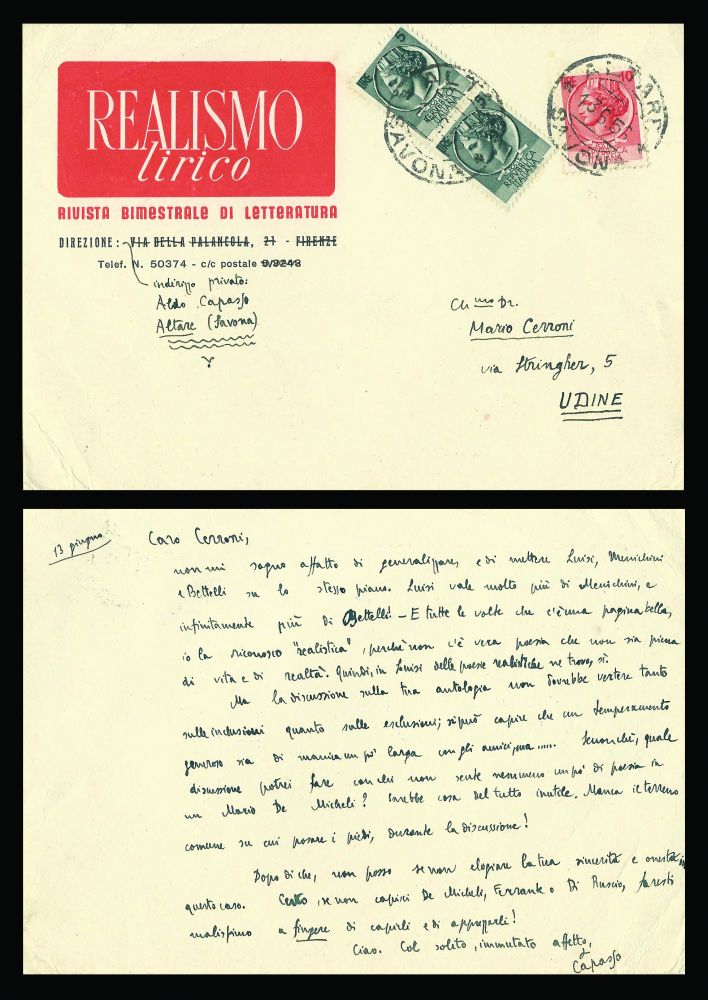 REALISMO
lirico
RIVISTA BIMESTRALE DI LETTERATURA
DIREZIONE: VIA DELLA PALANCOLA, 21 - FIRENZE
Telef. N. 50374 - c/c postale
indirizzo privato:
Aldo Capasso
Altare (Savona)
5
LIRE
REPUBBLICA
ITALIANA
5
REPUBBLICA
ITALIANA
SAVONA
LIRE 10
ALTARE
13.6.6
SAVONA
Ch.mo Dr.
Mario Cerroni
via Stringher, 5
UDINE
13 giugno
Caro Cerroni,
non mi sogno affatto di generalizzare, e di mettere Luisi, Menichini
e Bettelli su lo stesso piano. Luisi vale molto più di Menichini, e
infinitamente più di Bettelli! - E tutte le volte che c'è una pagina bella,
io la riconosco "realistica", perchè non c'è vera poesia che non sia piena
di vita e di realtà. Quindi, in Luisi delle poesie realistiche ne trovo, sì.
Ma la discussione sulla tua antologia non dovrebbe vertere tanto
sulle inclusioni quanto sulle esclusioni; si può capire che un temperamento
generoso sia di manica un po' larga con gli amici, ma..... Senonchè, quale
discussione potrei fare con chi non sente nemmeno un po' di poesia in
un Mario De Micheli? Sarebbe cosa del tutto inutile. Manca il terreno
comune su cui posare i piedi, durante la discussione!
Dopo di che, non posso se non elogiare la tua sincerità e onestà in
questo caso. Certo, se non capisci De Micheli, Ferrante o Di Ruscio, faresti
malissimo a fingere di capirli e di apprezzarli!
Ciao. Col solito, immutato affetto,
Capasso